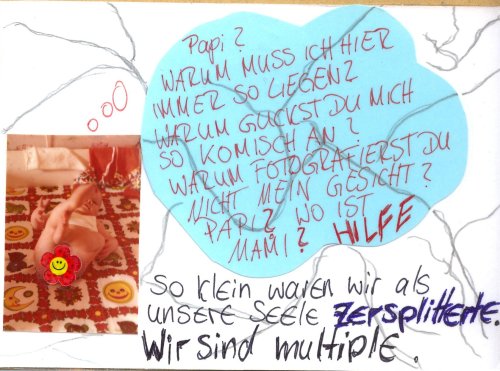 Papi?
WARUM MUSS ICH HIER
IMMER SO LIEGEN?
WARUM GUCKST DU MICH
SO KOMISCH AN?
WARUM FOTOGRAFIERST DU
NICHT MEIN GESICHT?
PAPI? WO IST
MAMI? HILFE
So klein waren wir als
unsere Seele zersplitterte.
Wir sind multiple.